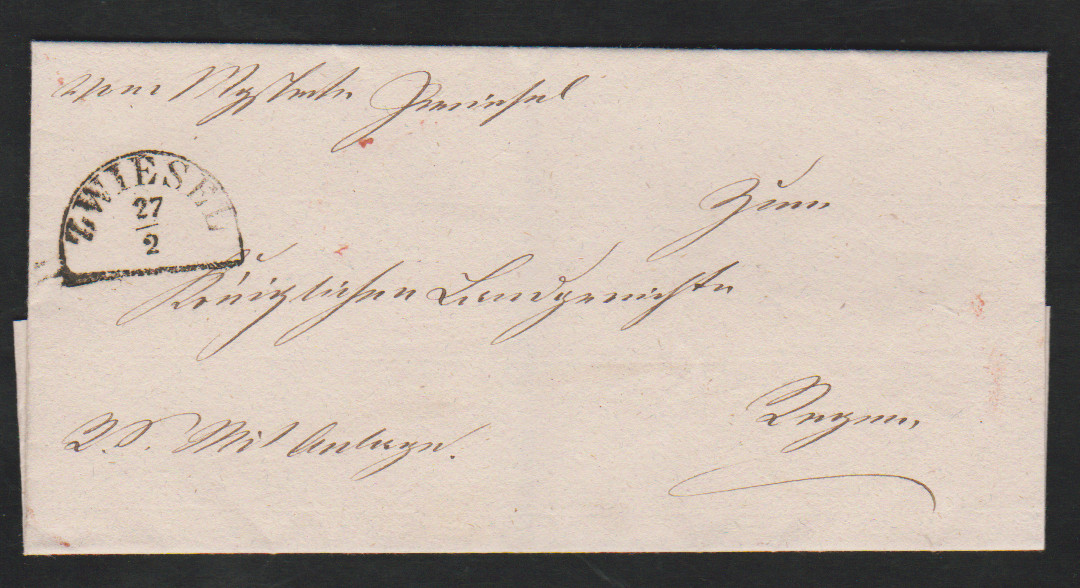 Vom Magistrate Zwiesel
ZWIESEL
27
2
Zum
Königlichen Landgerichte
Regen.
R.S. Mit Anlage.